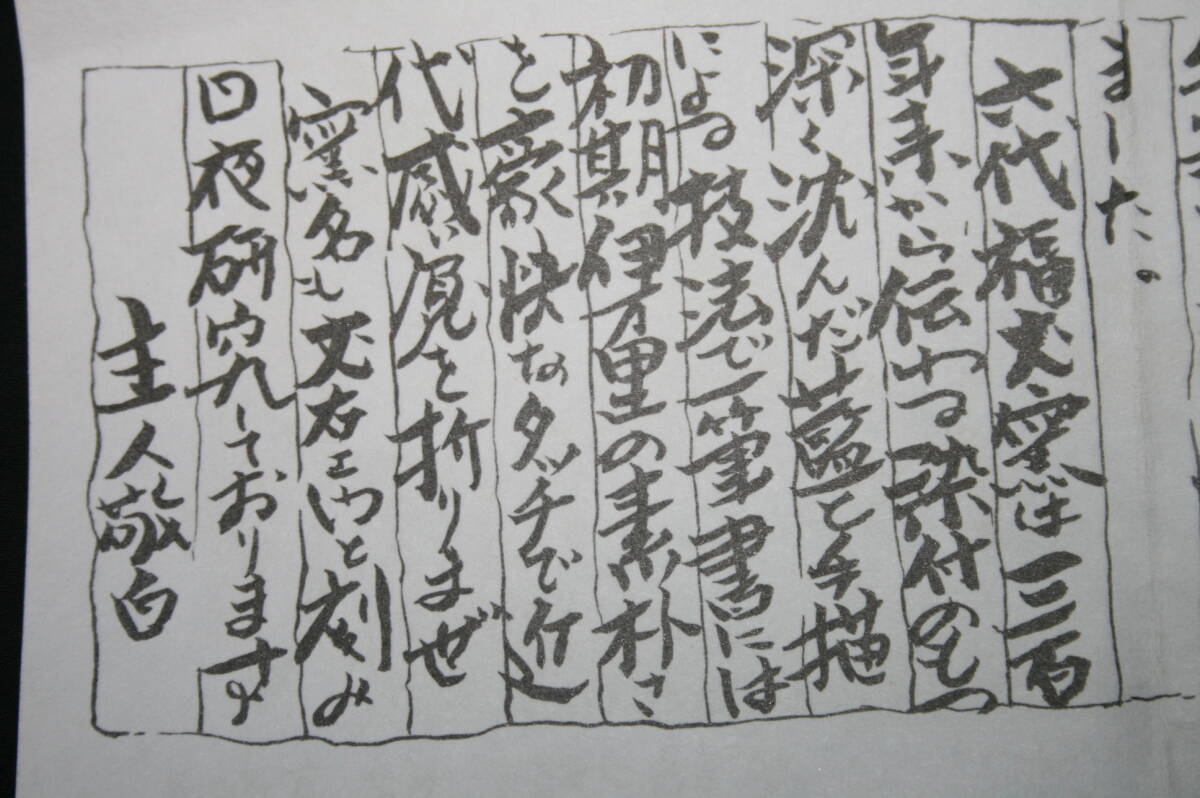 ました。
六代福文窯は三百
年来から伝わる染付のもつ
深く沈んだ藍と手描
による技法で一筆書には
初期伊万里の素朴さ
を豪快なタッチで近
代感覚を折りまぜ
窯名も文右エ門と刻み
日夜研究しております
主人敬白